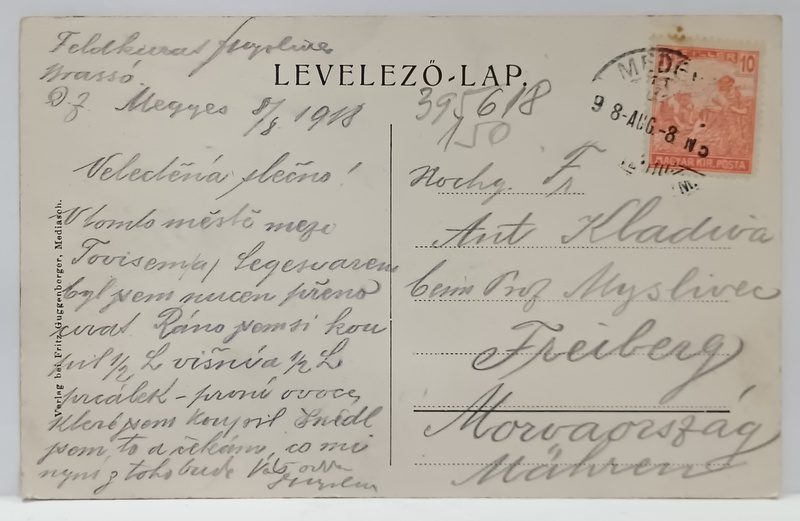 Feldkurat Myslivec
Brassó.
LEVELEZŐ-LAP.
D. z. Megyes 8/8 1918
395618
150
Veleděná slečno!
V tomto městě mezi
Tovisem a Segesvarem
byl jsem nucen přeno
covat. Ráno jsem si kou
pil 1/2 L višní a 1/2 L
jrcálek - první ovoce,
které jsem koupil Snědl
jsem to a čekám, co mi
nym z toho bude Váš odd
Myslivec
Hochg. Fr
Ant Kladiva
beim Prof Myslivec
Freiberg
Morvaország
Mähren
Verlag bei Fritz Guggenberger, Mediasch.
10
MAGYAR KIR. POSTA
98-AUG.-8 N5